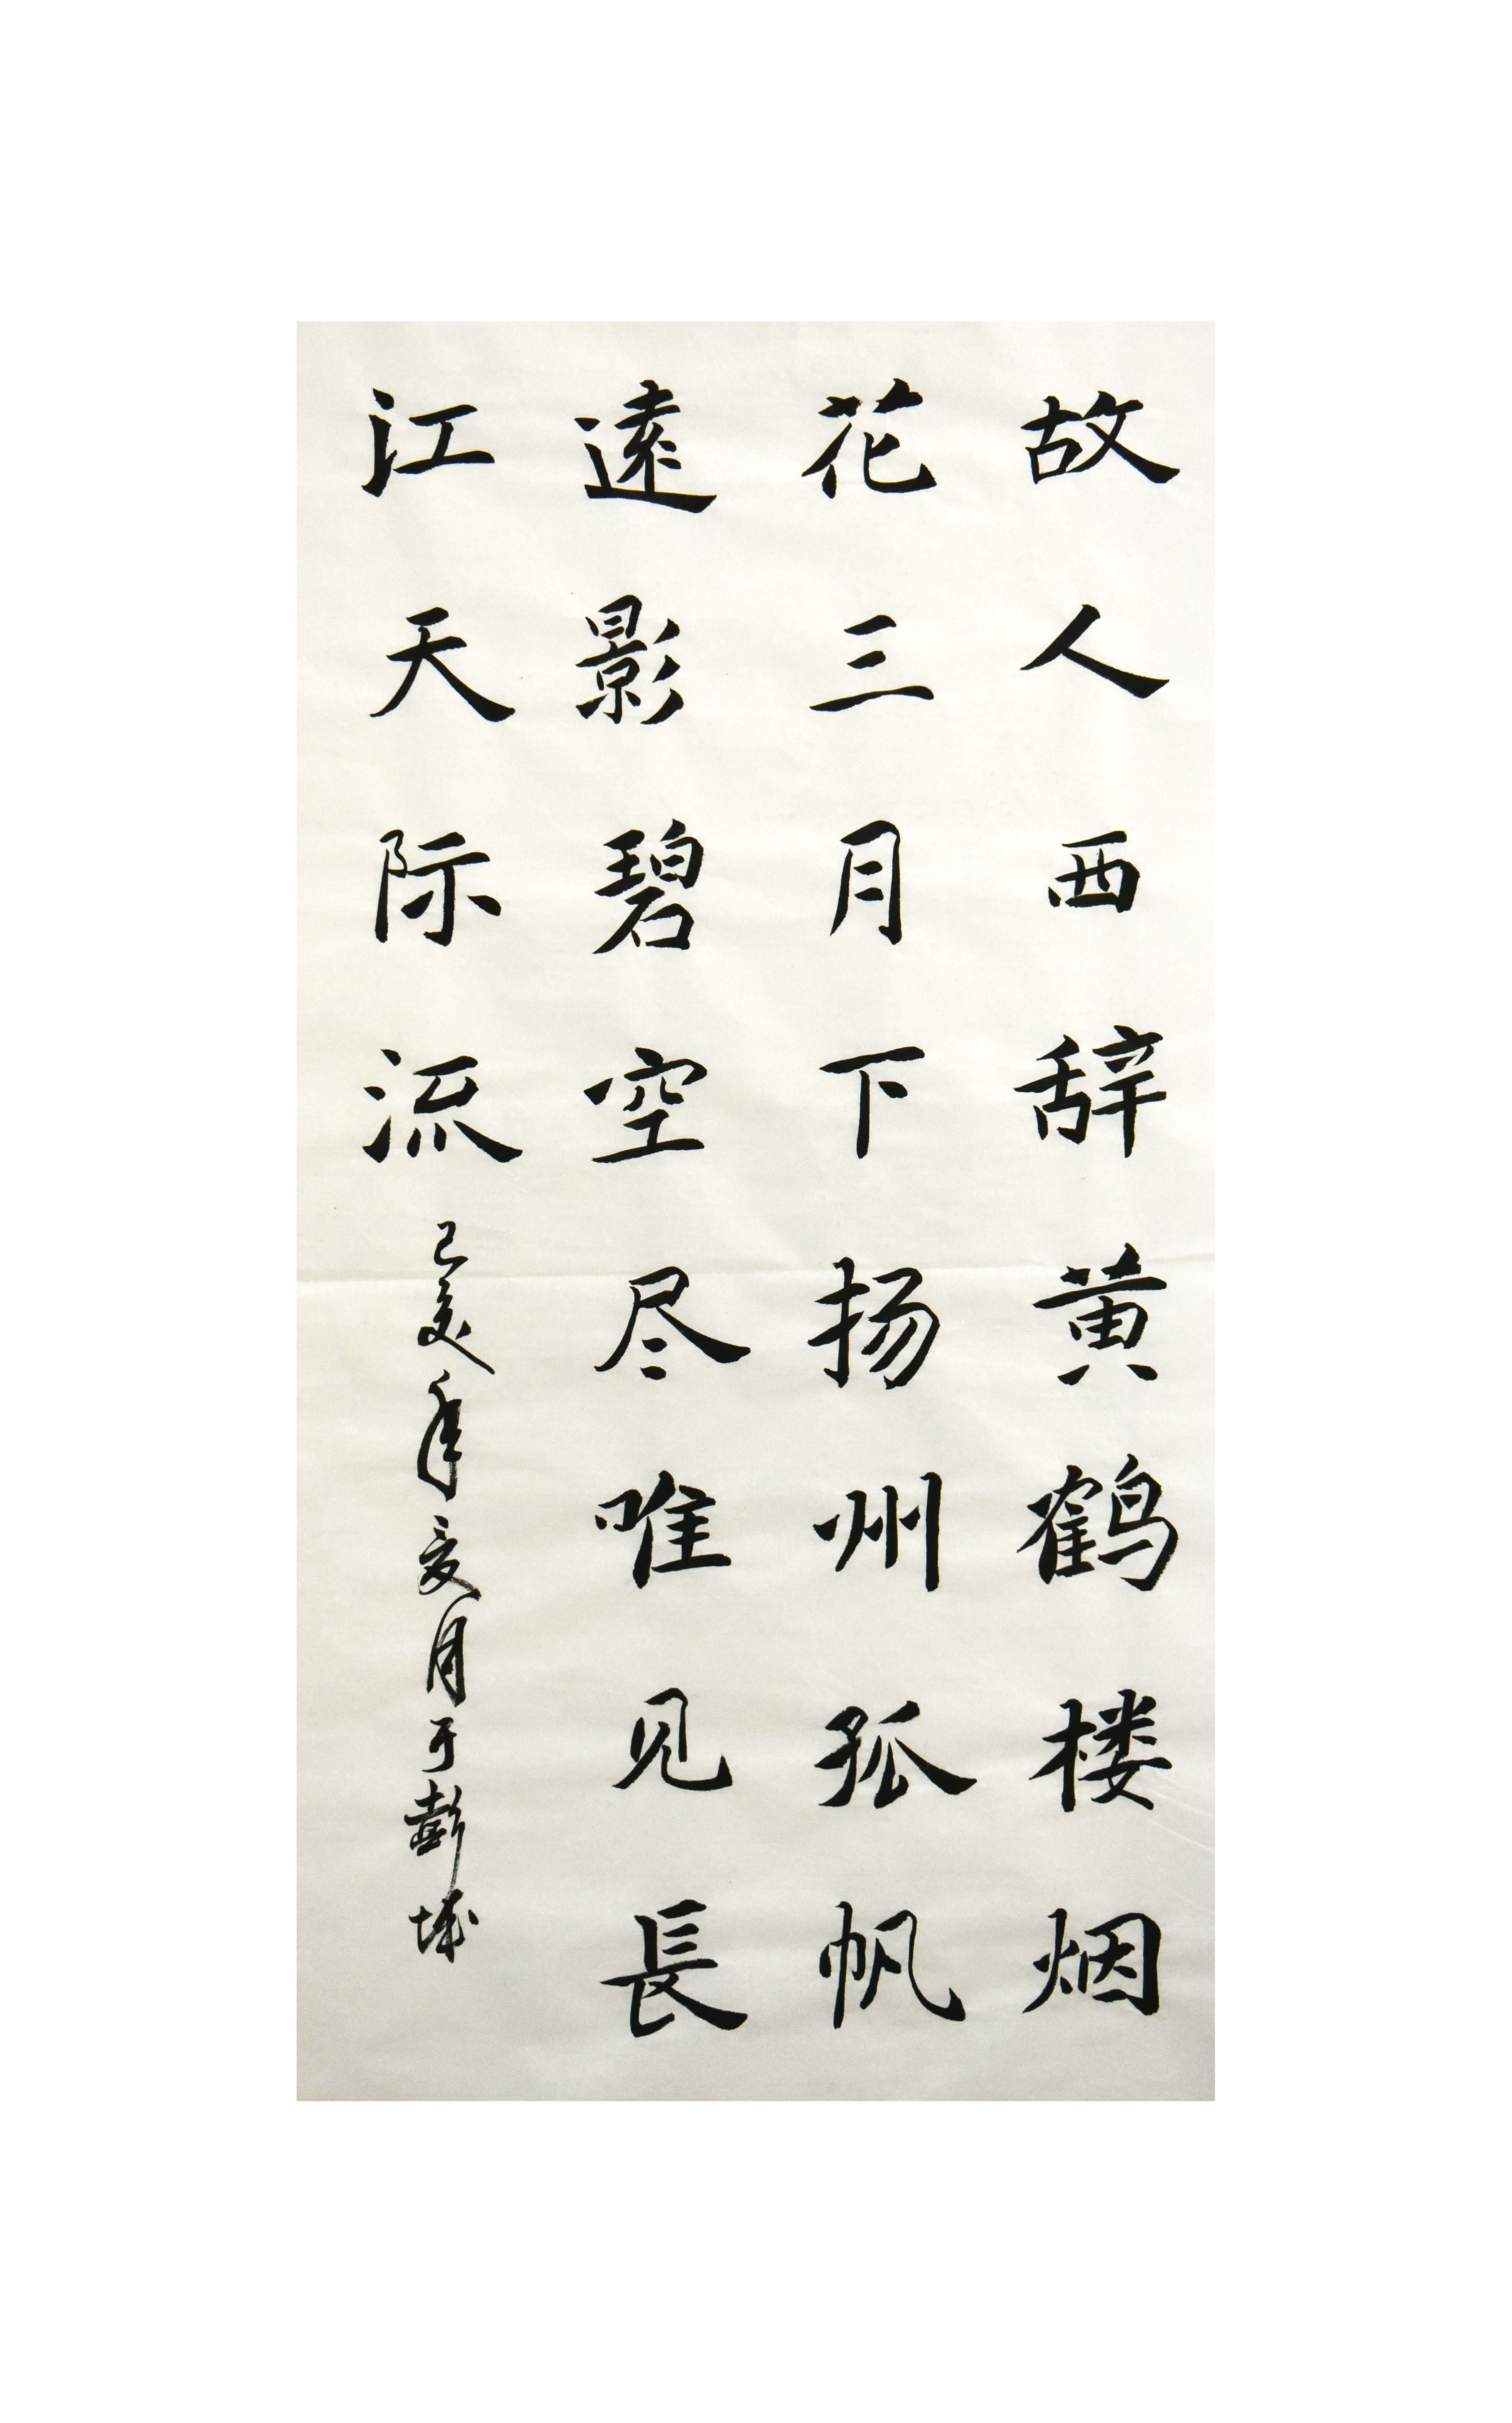 故人西辞黄鹤楼烟
花三月下扬州孤帆
遠影碧空尽唯见長
江天际流
己亥年夏月于彭城